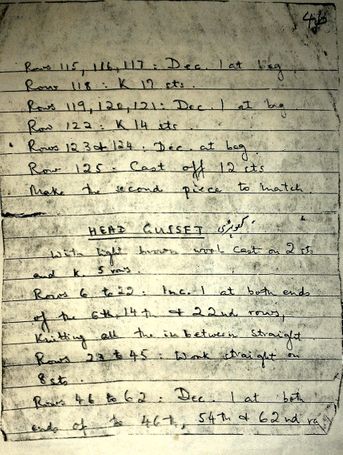 Rows 115, 116, 117 : Dec. 1 at beg
Row 118 : K 17 sts.
Rows 119, 120, 121 : Dec. 1 at beg
Row 122 : K 14 sts.
Rows 123 & 124 : Dec. at beg.
Row 125 : Cast off 12 sts
Make the second piece to match.
HEAD GUSSET
With light brown wool cast on 2 sts
and K 5 rows.
Rows 6 to 22 : Inc. 1 at both ends
of the 6th, 14th & 22nd rows,
Knitting all the in between straight.
Rows 23 to 45 : Work straight on
8 sts.
Rows 46 to 62 : Dec. 1 at both
ends of to 46th, 54th & 62nd